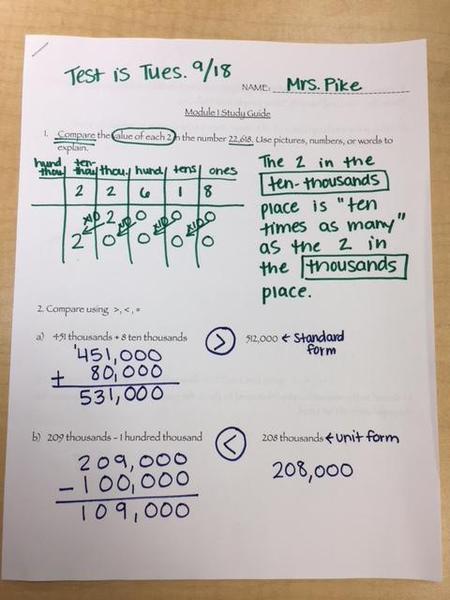 Test is Tues. 9/18
NAME: Mrs. Pike
Module 1 Study Guide
1. Compare the value of each 2 in the number 22,618. Use pictures, numbers, or words to
explain.
hund thou. ten-thou thou. hund. tens ones
2 2 6 1 8
2 0 0 0
x10 x10 x10 x10
2 0 0 0 0
The 2 in the
ten-thousands
place is "ten
times as many"
as the 2 in
the thousands
place.
2. Compare using >, <, =
a) 451 thousands + 8 ten thousands > 512,000 ← Standard
form
1
451,000
+ 80,000
531,000
b) 209 thousands – 1 hundred thousand < 208 thousands ← unit form
209,000
208,000
-100,000
109,000